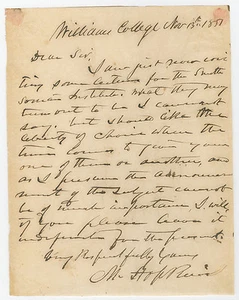 Williams College Nov 13th, 1851
Dear Sir,
I am just now wri
ting some lectures for the Smith
sonian Institute. What they may
turn out to be I cannot
say, but should like the
liberty of choice when the
time comes to give you
one of them or another, and
as I presume the announce
ment of the subject cannot
be of much importance I will,
if you please leave it
indefinite for the present.
Very Respectfully Yours
M Hopkins